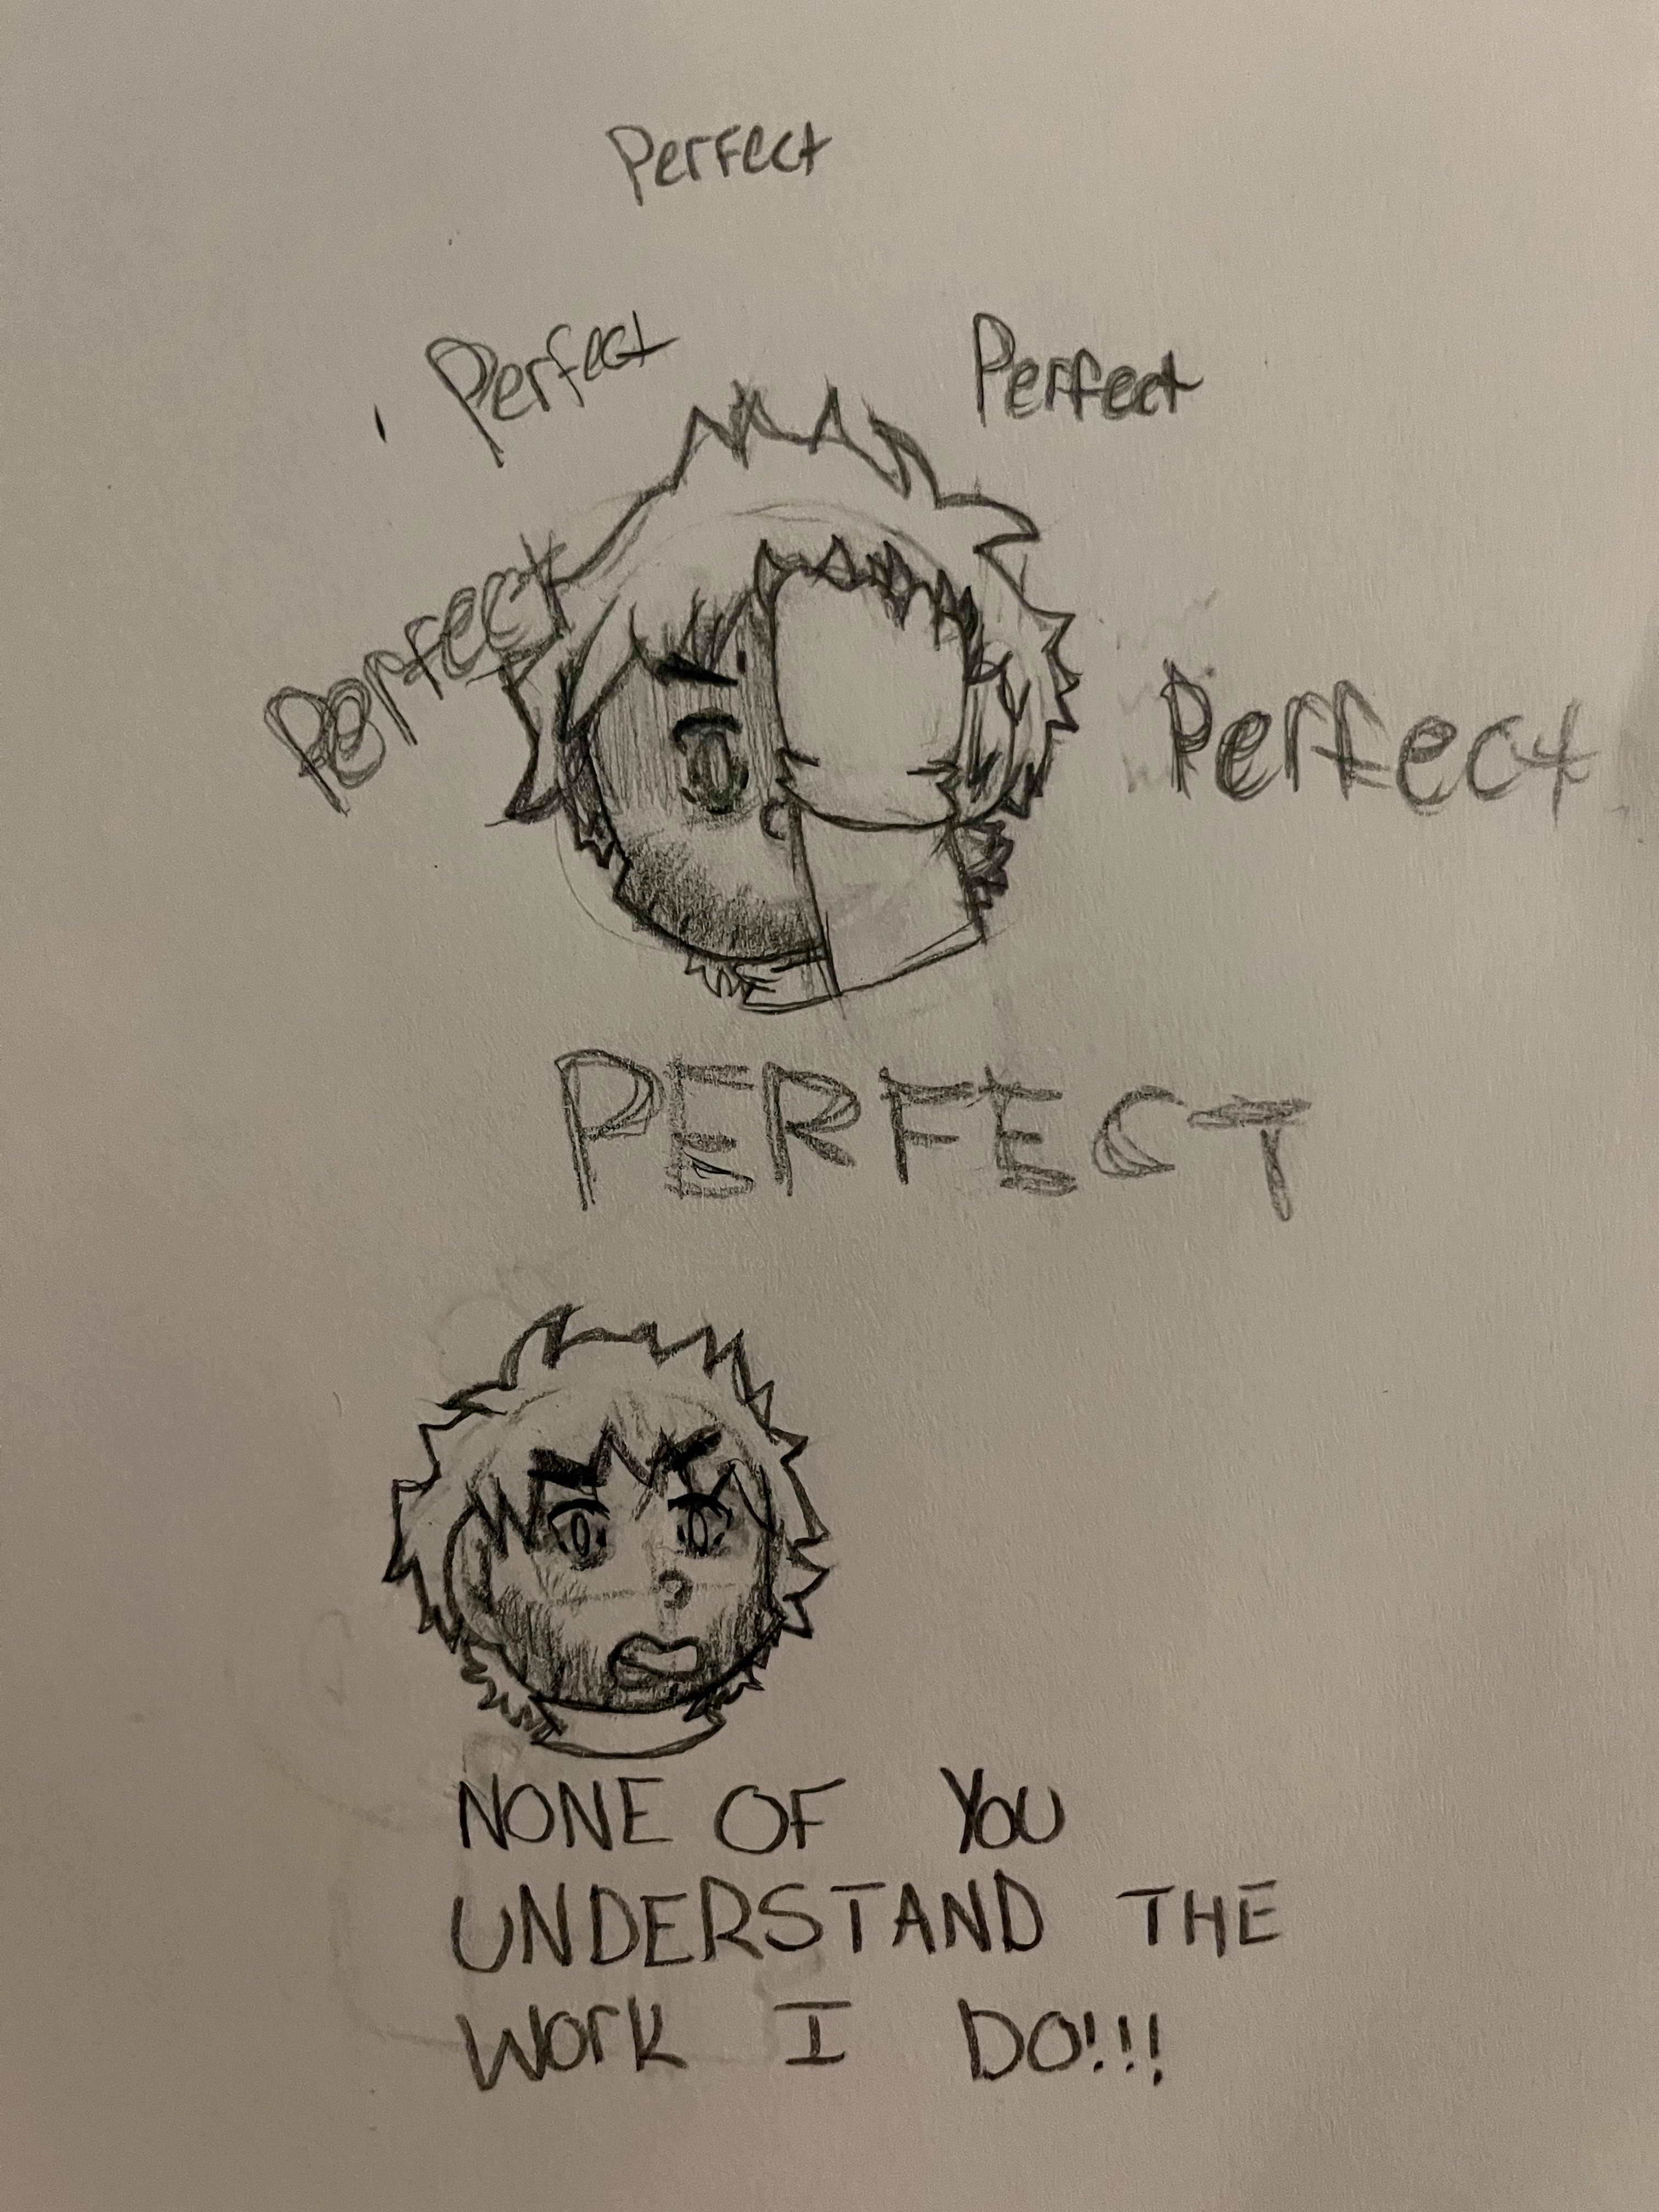 Perfect
Perfect
Perfect
Perfect
Perfect
PERFECT
NONE OF YOU
UNDERSTAND THE
WORK I DO!!!